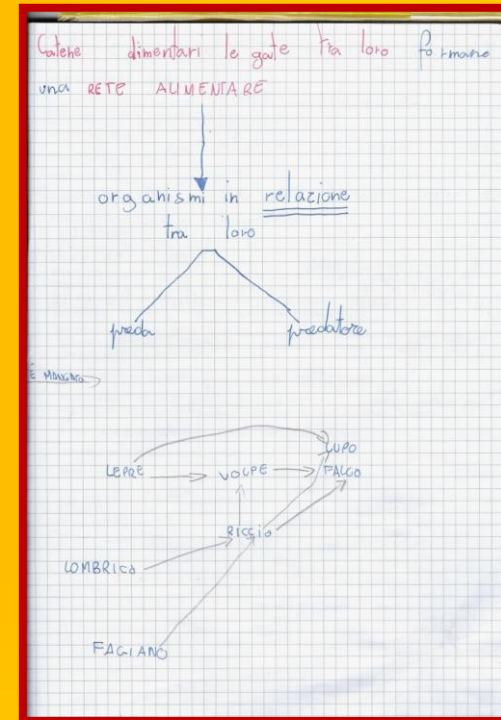 Catene alimentari le gate tra loro formano
una RETE ALIMENTARE
organismi in relazione
tra loro
preda predatore
È MANGIATO
LUPO
LEPRE VOLPE FALCO
RICCIO
LOMBRICO
FAGIANO